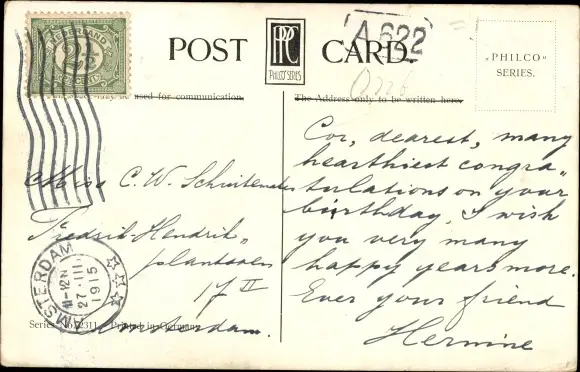 NEDERLAND
2½
CENT
POST CARD.
PPC
PHILCO SERIES
A 622
„PHILCO"
SERIES.
used for communication.
The Address only to be written here.
Miss C. W.
Fredrik-Hendrik„
plantsoen
17 II
Amsterdam.
AMSTERDAM
11-12N
27.III
1915
Series No. 2311 Printed in Germany
Cor, dearest, many
hearthiest congra„
tulations on your
birthday, I wish
you very many
happy years more.
Ever your friend
Hermine